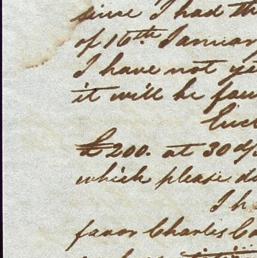 since I had th
of 10th January
I have not ye
it will be fou
Enc
£200. at 30 d/
which please d
I h
favor Charles Co